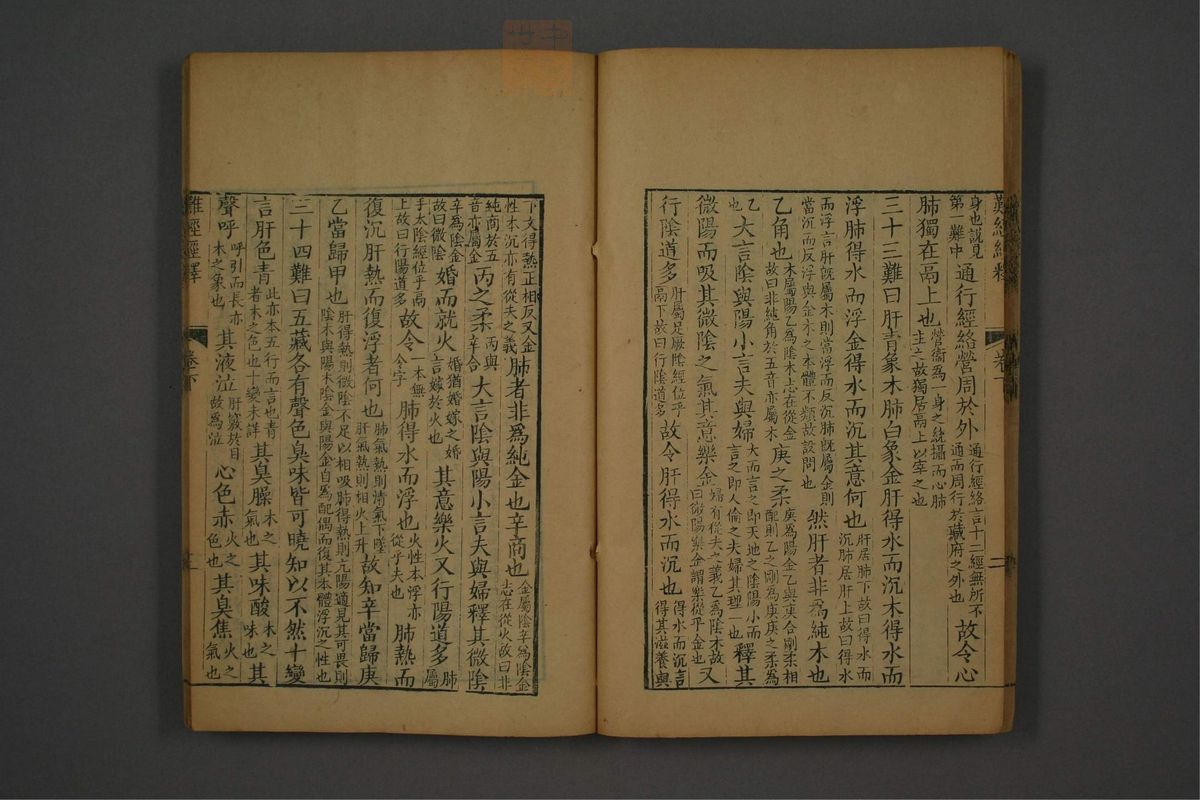 難經經釋
卷下
身也説見第一難中通行經絡營周於外通行經絡言十二經無所不通而周行於藏府之外也故令心
肺獨在鬲上也營衞為一身之統攝而心肺主之故獨居鬲上以宰之也
三十三難曰肝青象木肺白象金肝得水而沉木得水而
浮肺得水而浮金得水而沉其意何也肝居肺下故曰得水而沉肺居肝上故曰得水
而浮言肝旣屬木則當浮而反沉肺旣屬金則當沉而反浮與金木之本體不類故設問也然肝者非爲純木也
乙角也木屬陽乙為陰木志在從金故曰非純角於五音亦屬木庚之柔庚為陽金乙與庚合剛柔相配則乙之剛為庚庚之柔為
乙也大言陰與陽小言夫與婦大而言之即天地之陰陽小而言之即人倫之夫婦其理一也釋其
微陽而吸其微陰之氣其意樂金婦有從夫之義乙為陰木故曰微陽樂金謂樂從乎金也又
行陰道多肝屬足厥陰經位乎鬲下故曰行陰道多故令肝得水而沉也得水而沉言得其滋養與
下文得熱正相反又金性本沉亦有從夫之義肺者非爲純金也辛商也金屬陰辛為陰金志在從火故曰非
純商於五音亦屬金丙之柔丙與辛合大言陰與陽小言夫與婦釋其微陰
辛為陰金故曰微陰婚而就火婚猶婚嫁之婚言嫁於火也其意樂火又行陽道多肺屬
手太陰經位乎鬲上故曰行陽道多故令一本無令字肺得水而浮也火性本浮亦從乎夫也肺熱而
復沉肝熱而復浮者何也肺氣熱則清氣下墜肝氣熱則相火上升故知辛當歸庚
乙當歸甲也肝得熱則微陰不足以相吸肺得熱則亢陽適見其可畏則陰木與陽木陰金與陽金自為配偶而復其本體浮沉之性也
三十四難曰五藏各有聲色臭味皆可曉知以不然十變
言肝色青此亦本五行而言也青者木之色也十變未詳其臭臊木之氣也其味酸木之味也其
聲呼呼引而長亦木之象也其液泣肝竅於目故為泣心色赤火之色也其臭焦火之氣也
難經經釋
卷下